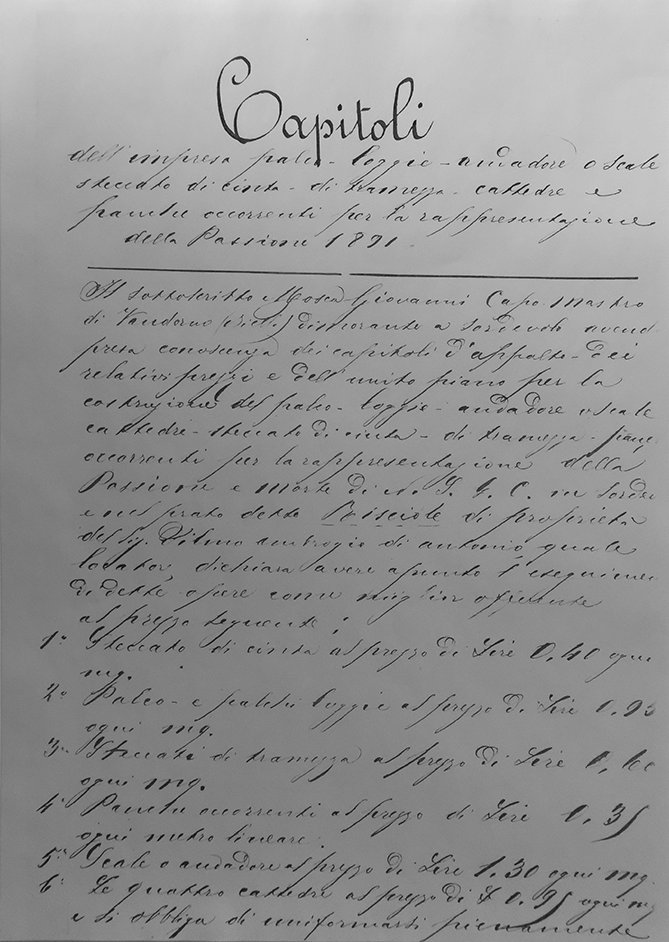 Capitoli
dell'impresa palco - loggie - andadore o scale
steccato di cinta - di tramezza - cattedre e
panche occorrenti per la rappresentazione
della Passione 1891
Il sottoscritto Mosca Giovanni Capo Mastro
di Vandorno dimorante a Sordevolo avend
presa conoscenza dei capitoli d'appalto - dei
relativi prezzi e dell'unito piano per la
costruzione del palco - loggie - andadore o scale
cattedre - steccato di cinta - di tramezza - panc
occorrenti per la rappresentazione della
Passione e morte di N. S. G. C. in Sordev
e nel prato detto di proprietà
del Sig. Ambrogio di Antonio, quale
locator, dichiara avere assunto l'eseguimen
di dette opere come miglior offerente
al prezzo seguente:
1° Steccato di cinta al prezzo di Lire 0,40 ogni
mq.
2° Palco - e palchi loggie al prezzo di Lire
ogni mq.
3° Steccati di tramezza al prezzo di Lire
ogni mq.
4° Panche occorrenti al prezzo di Lire 0,35
ogni metro lineare.
5° Scale o andadore al prezzo di Lire 1.30 ogni mq
6° Le quattro cattedre al prezzo di £ 0,95 ogni mq
e si obbliga di uniformarsi pienamente